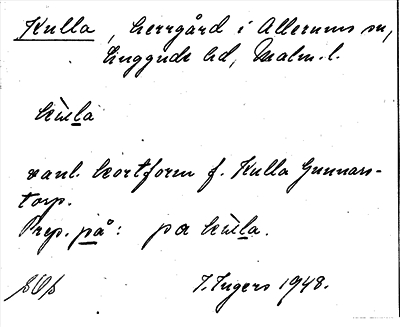 Kulla, herrgård i Allerums sn,
Luggude hd, Malm. l.
kùla
vanl. kortform f. Kulla Gunnars-
torp.
Prep. på: pa kùla.
I. Ingers 1948.